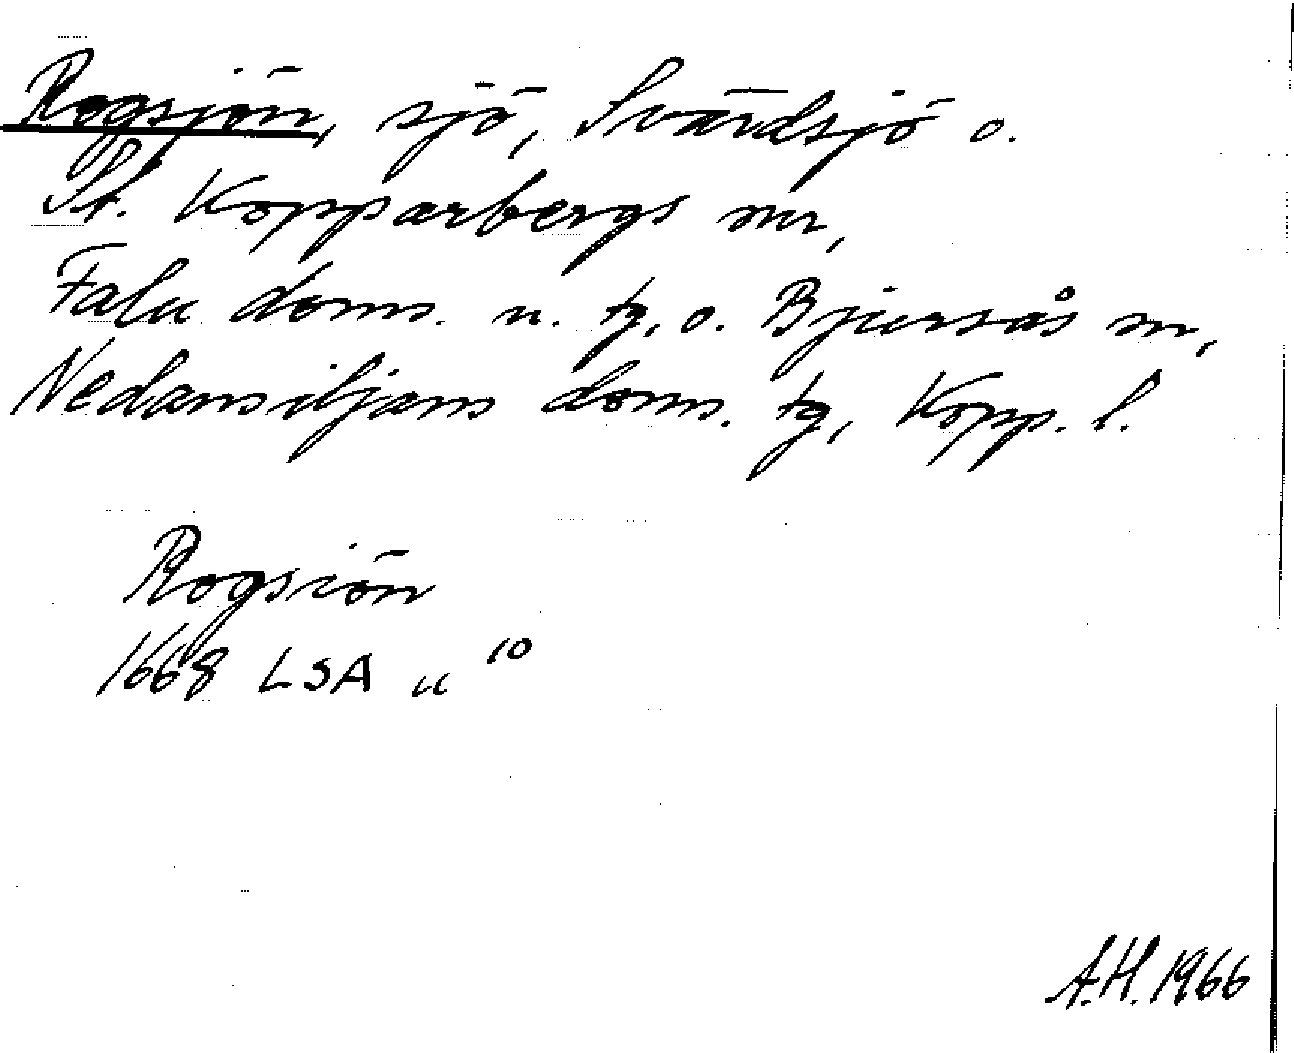 Rogsjön, sjö, Svärdsjö o.
St. Kopparbergs snr,
Falu doms. n. tg, o. Bjursås sn,
Nedansiljans doms. tg, Kopp. l.
Rogsiön
1668 LSA u 10
A.H. 1966